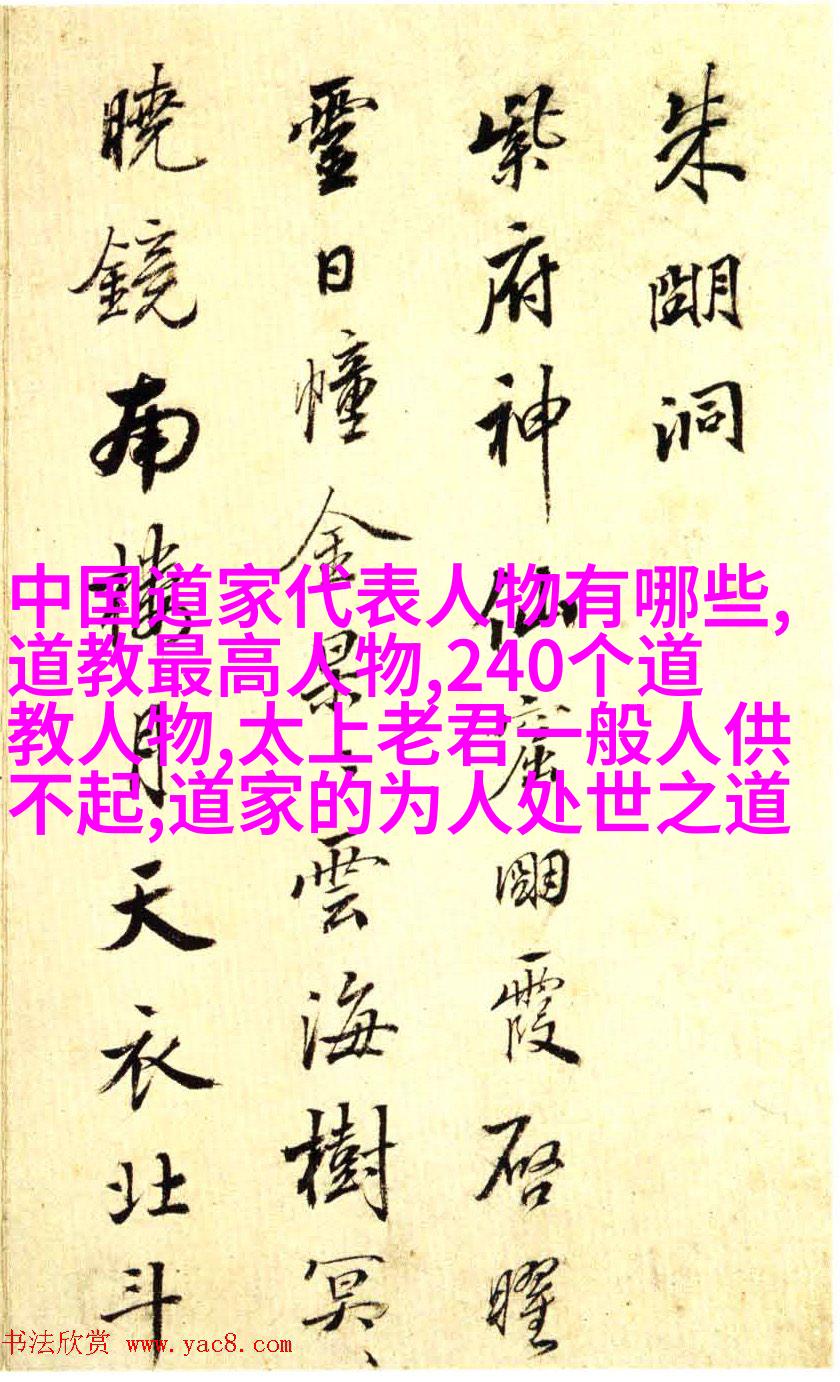 朱朙洞
紫府神仙窟朙霞启曜
靈日幢金景、雲海樹冥、
曉鏡南樓月天衣北斗
中国道家代表人物有哪些,
道教最高人物,240个道
教人物,太上老君一般人供
不起,道家的为人处世之道
书法欣赏 www.yac8.com